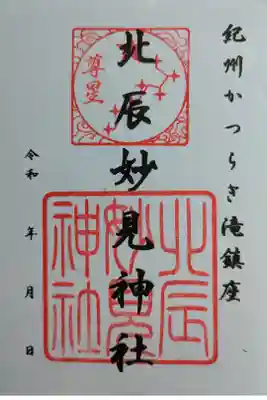 紀州かつらぎ滝鎮座
北辰妙見神社
令和 年 月 日
尊星
北辰妙見神社